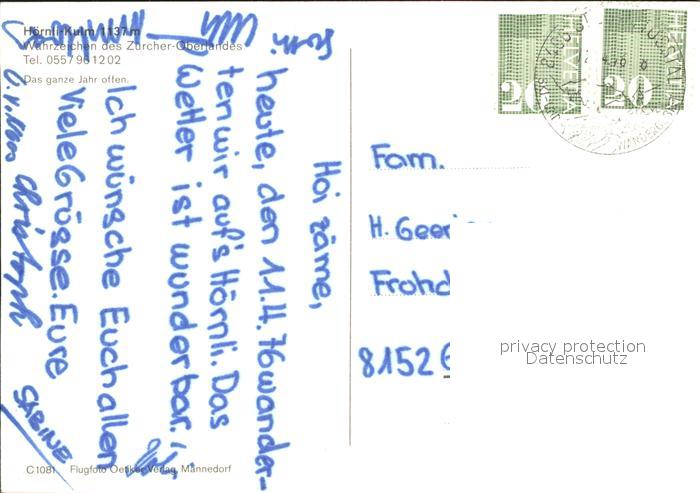 Hörnli-Kulm 1137 m
Wahrzeichen des Zürcher-Oberlandes
Tel. 0557 96 12 02
Das ganze Jahr offen.
Hoi zäme,
heute, den 11.4.76 wander-
ten wir auf's Hörnli. Das
Wetter ist wunderbar.
Ich wünsche Euch allen
Viele Grüsse. Eure
Christoph
SABINE
C 1081 Flugfoto Oetiker Verlag, Männedorf
HELVETIA
20
HELVETIA
20
Fam.
H. Geer
Frohd
8152 G
privacy protection
Datenschutz